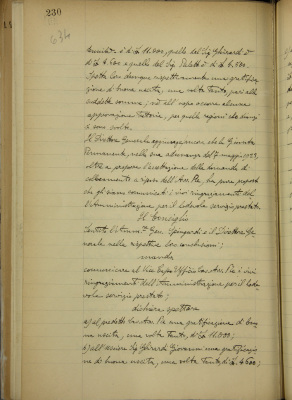 230
634
è di £ 16.000, quello del Sig. Ghirardi è
di £ 4.500 e quello del Sig. è di £ 6.500.
Spetta loro dunque rispettivamente una gratifica-
zione di buona uscita, una volta tanto, pari alle
suddette somme; nè all'uopo occorre alcuna
approvazione Tutoria, per quelle ragioni che
è
Il Direttore Generale aggiunge ancora che la Giunta
Permanente, nella sua adunanza del 7 maggio 1923,
oltre a proporre l'accettazione della domanda di
collocamento a riposo dell'Avv. Pia, ha pure proposto
che gli siano comunicati i vivi ringraziamenti del-
l'Amministrazione per il lodevole servizio prestato.
Il Consiglio
Sentiti l'Onn. Gen. Spingardi e il Direttore Ge-
nerale nelle rispettive loro conclusioni;
manda
comunicare al Vice Capo Ufficio Cav. Avv. Pia i vivi
ringraziamenti dell'Amministrazione per il lode-
vole servizio prestato;
dichiara spettare
a) al predetto Cav. Avv. Pia una gratificazione di buo-
na uscita, una volta tanto, di £ 16.000;
b) all'usciere Sig. Ghirardi Giovanni una gratificazio-
ne di buona uscita, una volta tanto, di £ 4.500;